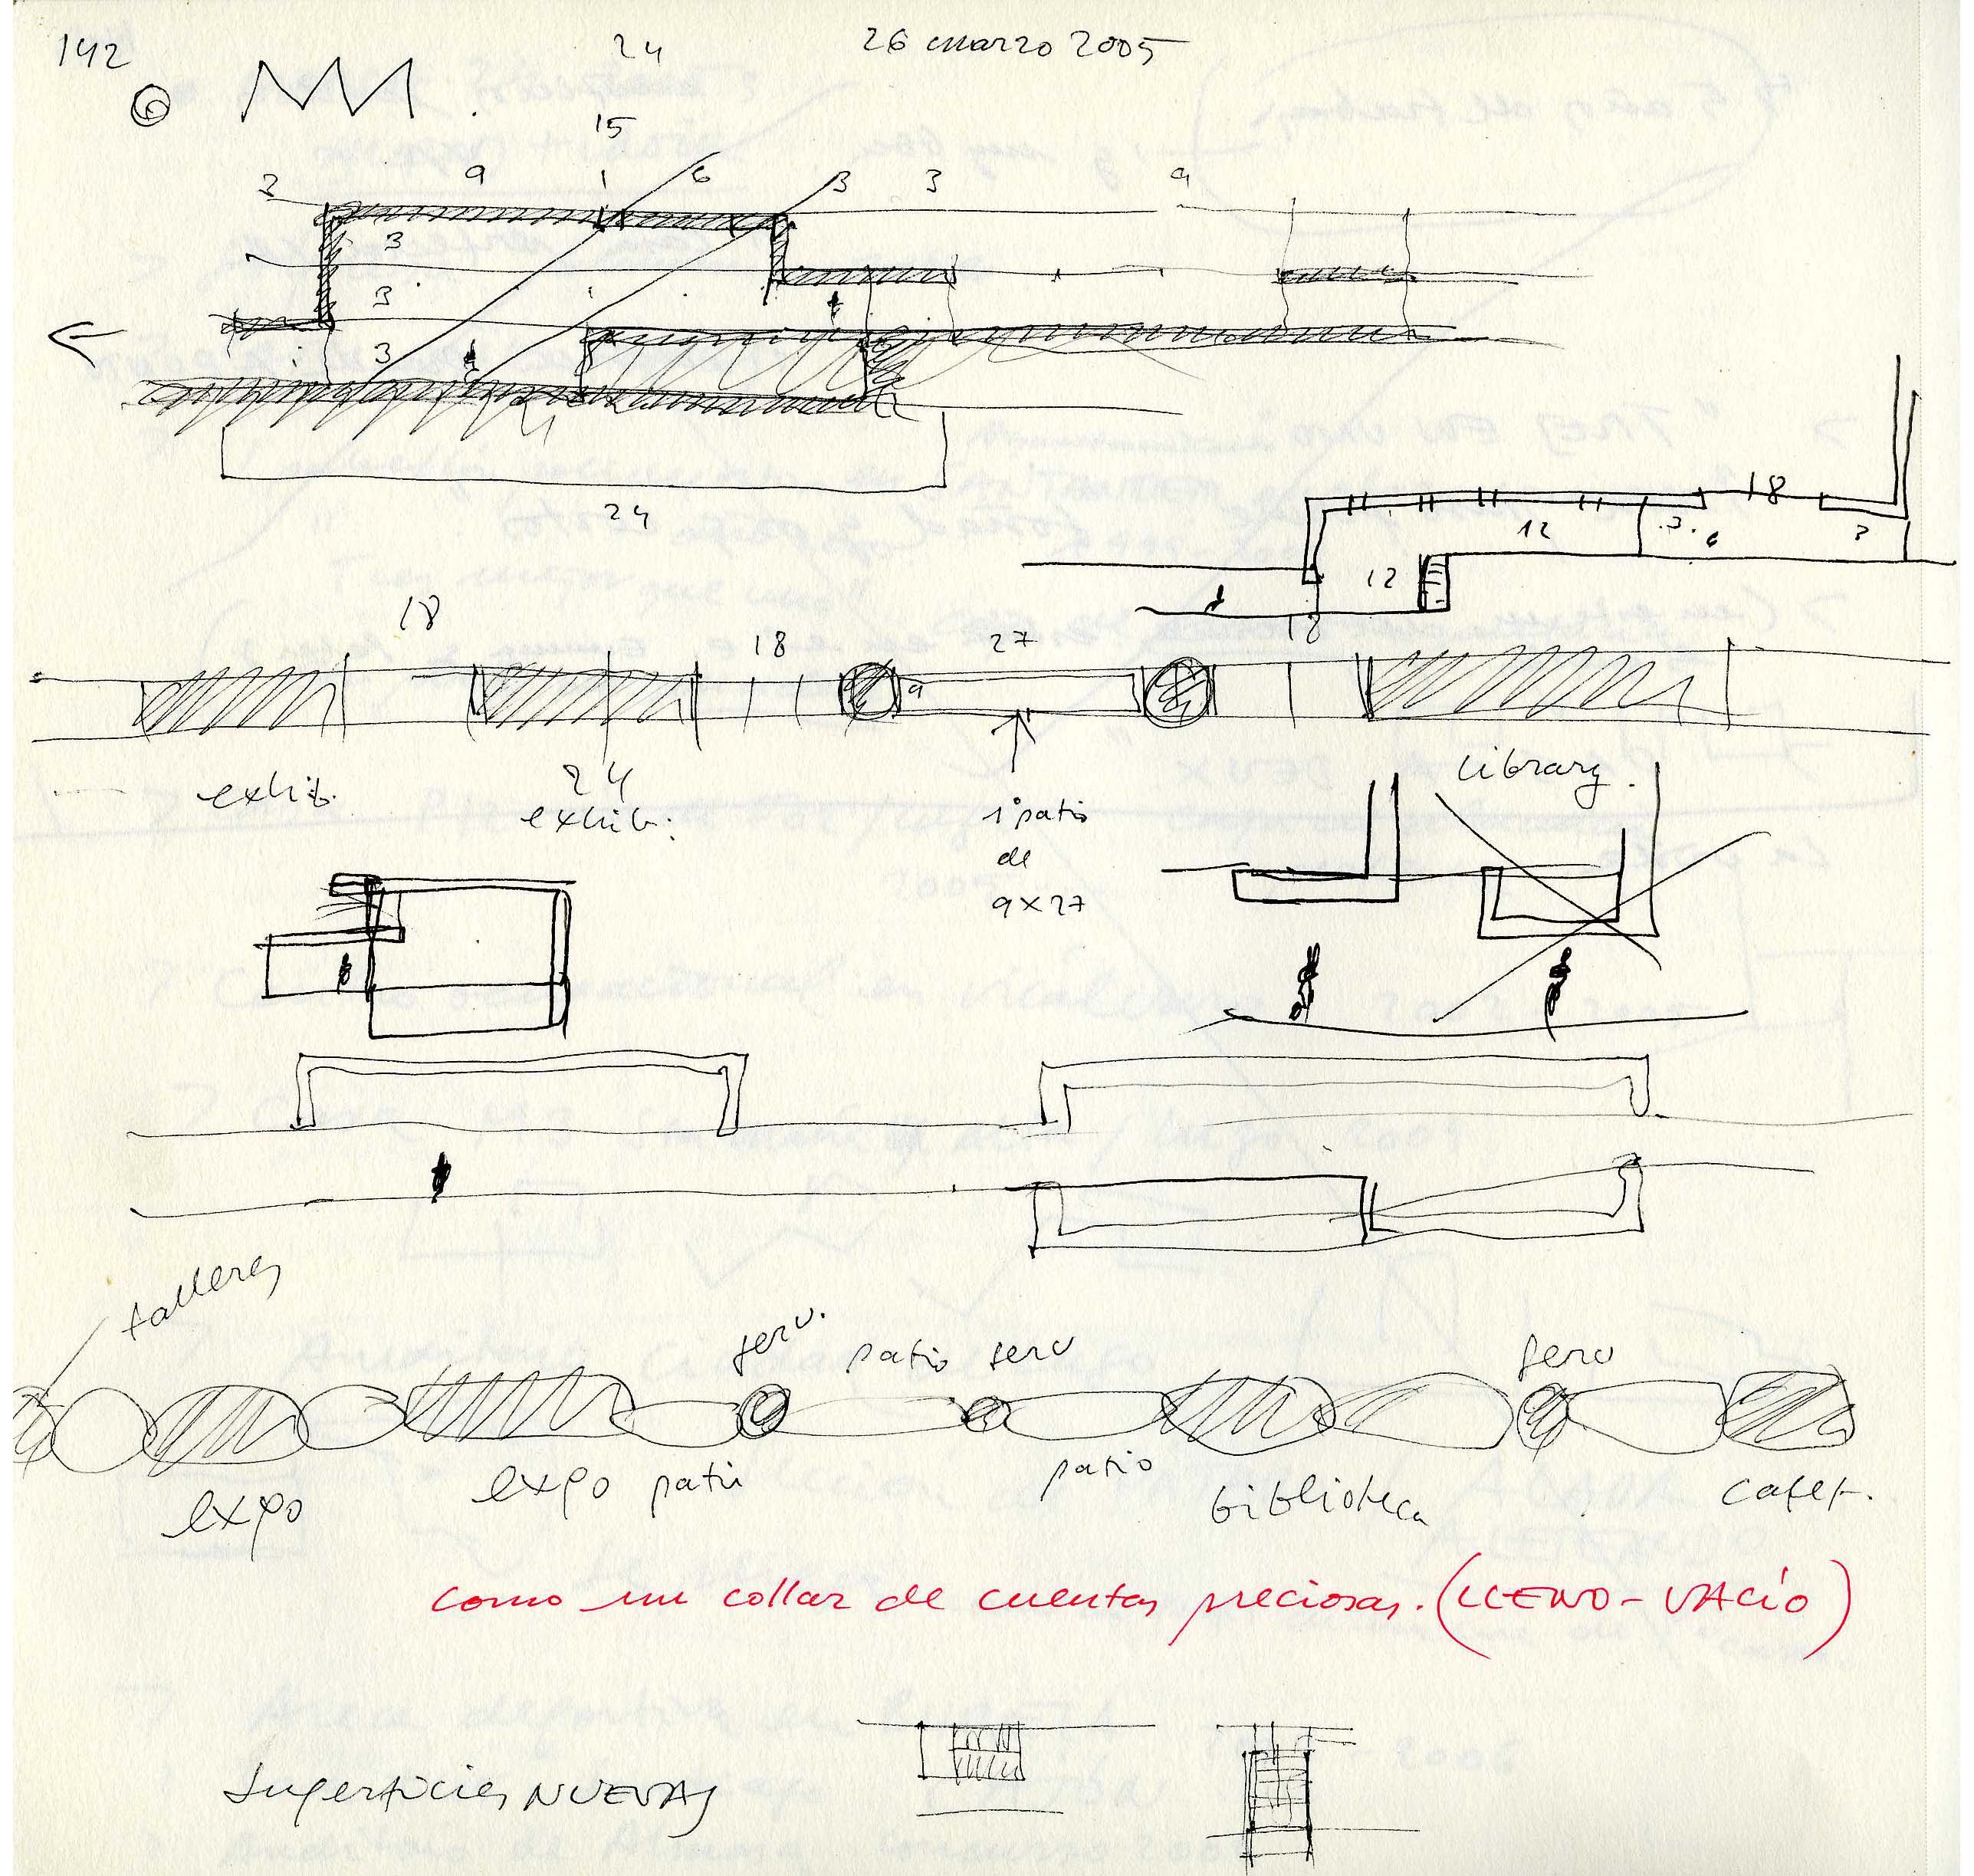 142
24
26 marzo 2005
6
15
2 9 1 6 3 3 9
3
3
3
24
18
12 3. 6 3
12
18
18 18 27
9
library.
exhib.
24
exhib.
1º patio
de
9x27
talleres
serv. patio serv serv
expo expo patio patio biblioteca cafet.
como un collar de cuentas preciosas. (LLENO - VACÍO)
Superficies NUEVAS